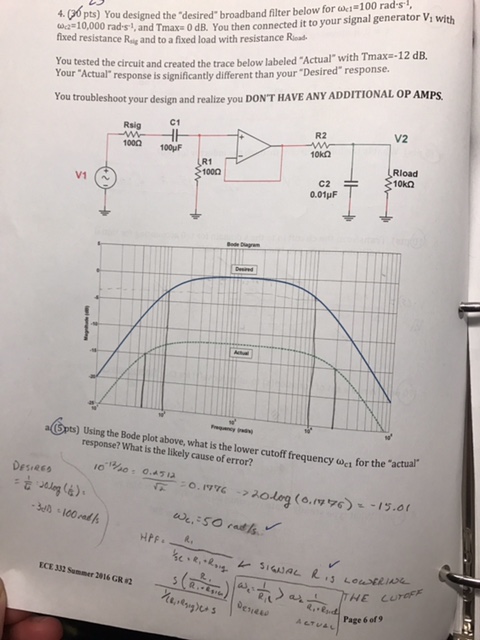 4. (20 pts) You designed the "desired" broadband filter below for ωc1=100 rad·s-1,
ωc2=10,000 rad·s-1, and Tmax= 0 dB. You then connected it to your signal generator V1 with
fixed resistance Rsig and to a fixed load with resistance Rload.
You tested the circuit and created the trace below labeled "Actual" with Tmax=-12 dB.
Your "Actual" response is significantly different than your "Desired" response.
You troubleshoot your design and realize you DON'T HAVE ANY ADDITIONAL OP AMPS.
Rsig
100Ω
C1
100µF
R1
100Ω
V1
R2
10kΩ
C2
0.01µF
V2
Rload
10kΩ
Bode Diagram
Desired
Actual
Magnitude (dB)
Frequency (rad/s)
a. (5pts) Using the Bode plot above, what is the lower cutoff frequency ωc1 for the "actual"
response? What is the likely cause of error?
DESIRED
= 1/√2 20log(1/√2)=
-3dB = 100 rad/s
10^-12/20 = 0.2512/√2 = 0.1776 → 20log(0.1776) = -15.01
ωc1 = 50 rad/s ✓
HPF = R1 / 1/sC + R1 + Rsig
← SIGNAL R IS LOWERING
THE CUTOFF
DESIRED
ACTUAL
ECE 332 Summer 2016 GR #2
Page 6 of 9